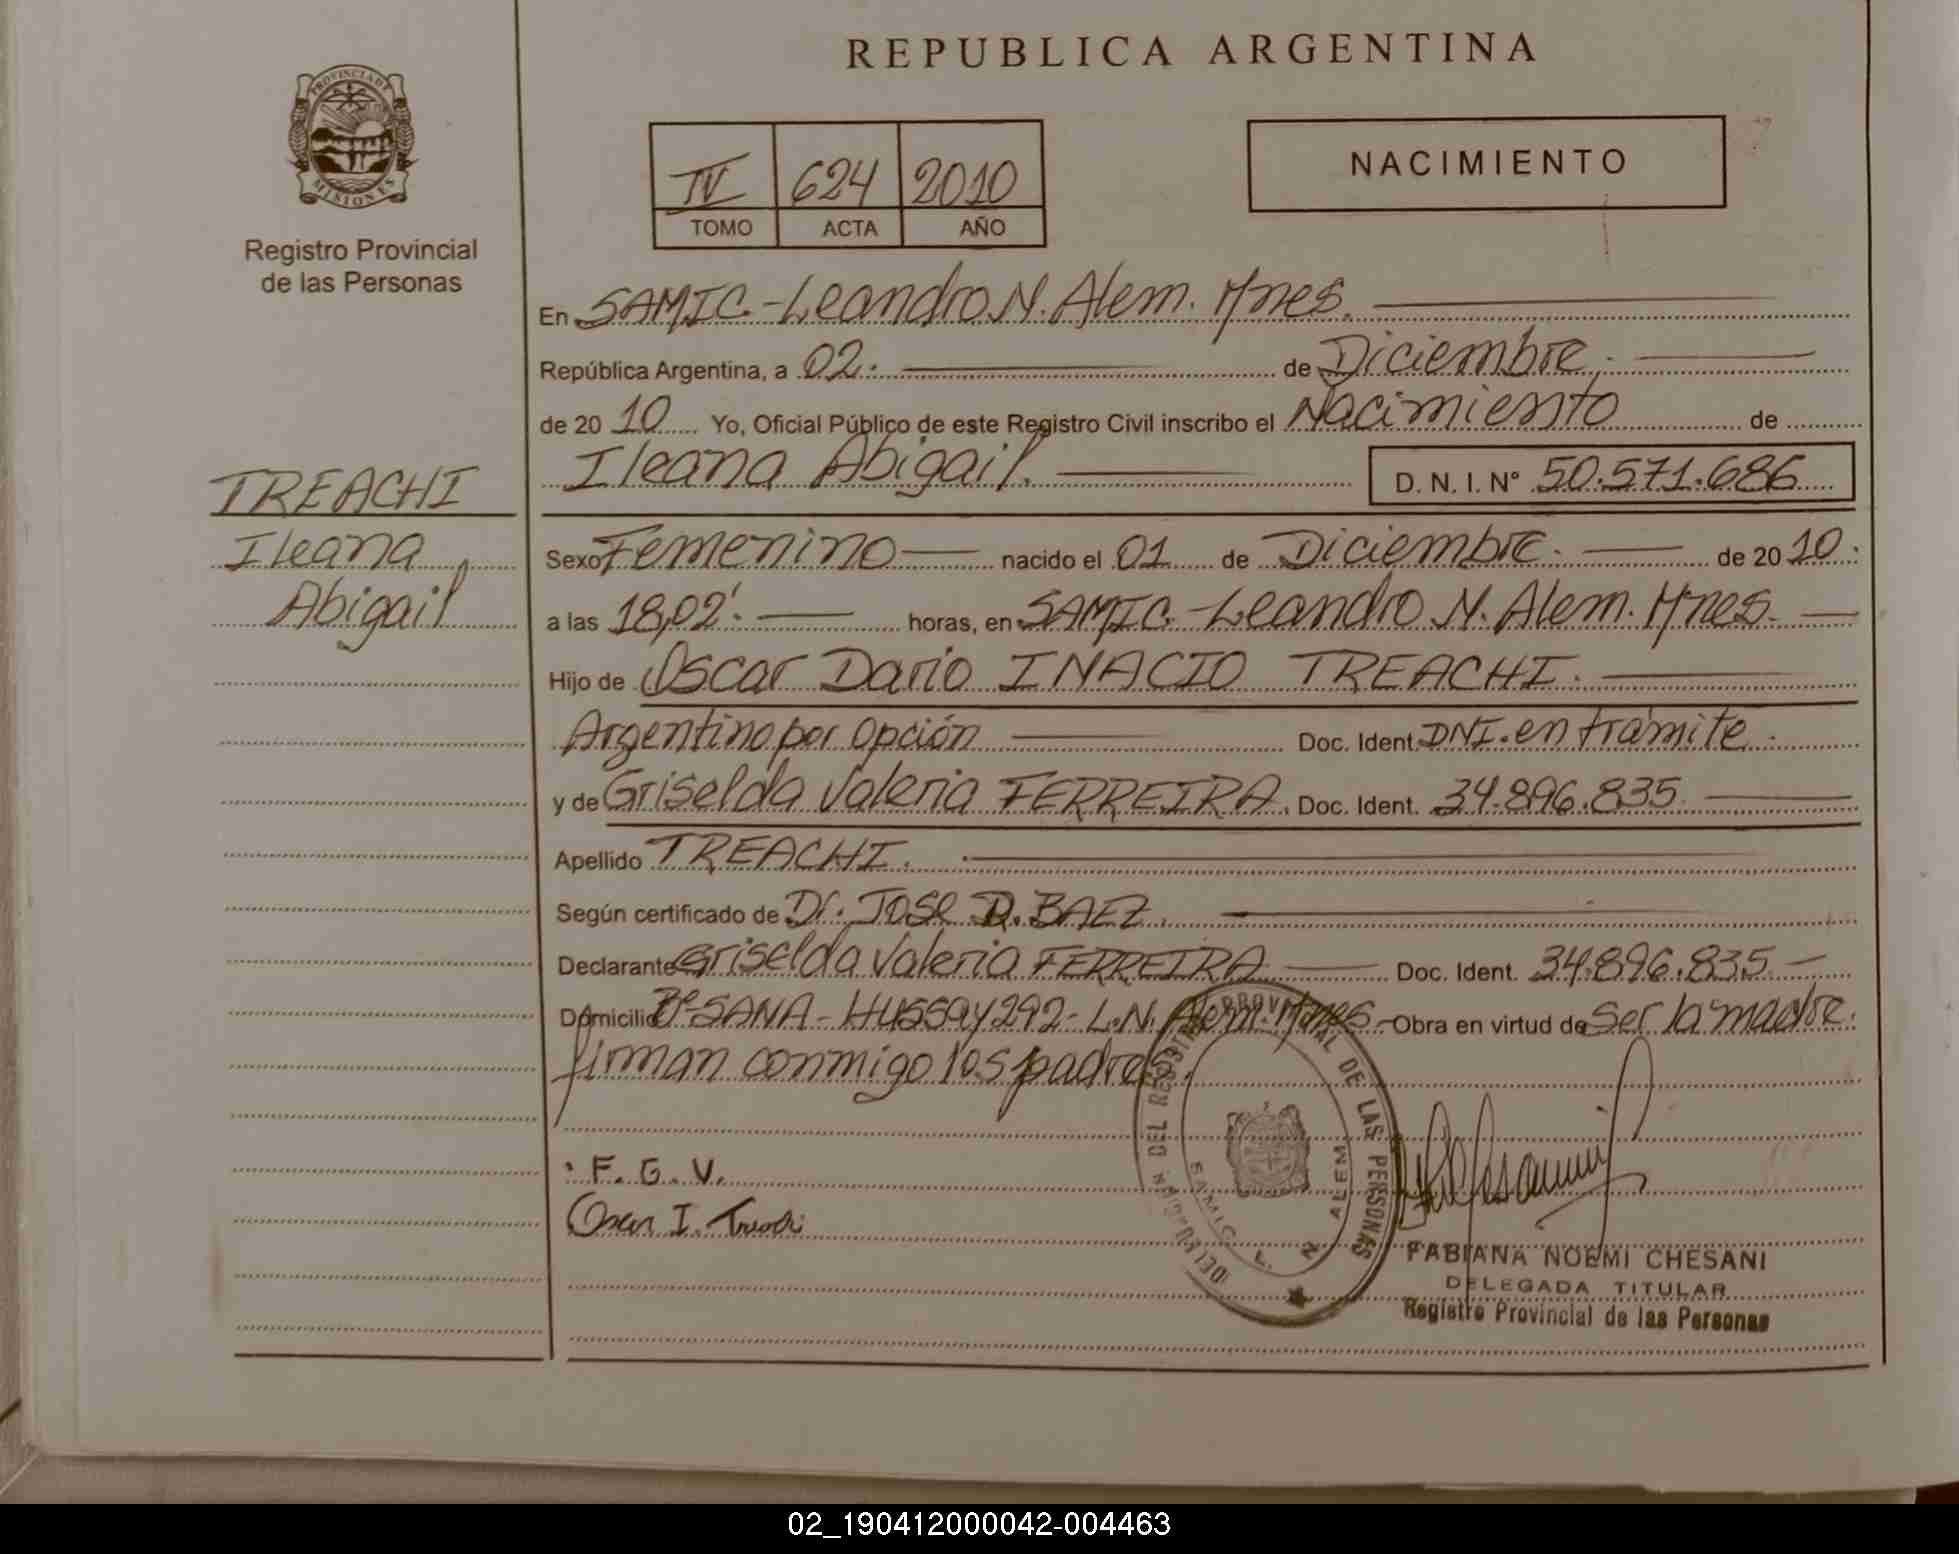 REPUBLICA ARGENTINA
PROVINCIA DE
MISIONES
Registro Provincial
de las Personas
IV 624 2010
TOMO ACTA AÑO
NACIMIENTO
En SAMIC-Leandro N. Alem. Mnes.
República Argentina, a 02. de Diciembre.
de 20 10 Yo, Oficial Público de este Registro Civil inscribo el Nacimiento de
Ileana Abigail. D. N. I. N° 50.571.686
TREACHI
Ileana
Abigail
Sexo Femenino nacido el 01 de Diciembre. de 20 10.
a las 18,02'. horas, en SAMIC-Leandro N. Alem. Mnes.
Hijo de Oscar Dario INACIO TREACHI.
Argentino por opción Doc. Ident. DNI. en trámite.
y de Griselda Valeria FERREIRA. Doc. Ident. 34.896.835
Apellido TREACHI.
Según certificado de Dr. JOSE D. BAEZ.
Declarante Griselda Valeria FERREIRA Doc. Ident. 34.896.835
Domicilio Bº SANA - HUSSAY 292 - L.N. Alem. Mnes. Obra en virtud de Ser la madre.
firman conmigo los padres.
F. G. V.
Oscar I. Treachi
PROVINCIAL DE LAS PERSONAS
SAMIC L. N. ALEM
FABIANA NOEMI CHESANI
DELEGADA TITULAR
Registro Provincial de las Personas
02_190412000042-004463